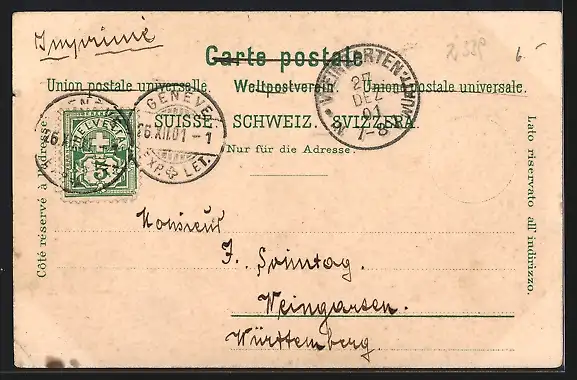 Imprimé
Carte postale
Union postale universelle. Weltpostverein. Unione postale universale.
SUISSE. SCHWEIZ. SVIZZERA.
Nur für die Adresse.
Côté réservé à l'adresse.
Lato riservato all'indirizzo.
HELVETIA
5
GENÈVE
26.XII.01 - 1
EXP. LET.
WEINGARTEN
27
DEZ
01
7-8
Monsieur
J. Sonntag.
Weingarten.
Württemberg.
6.-